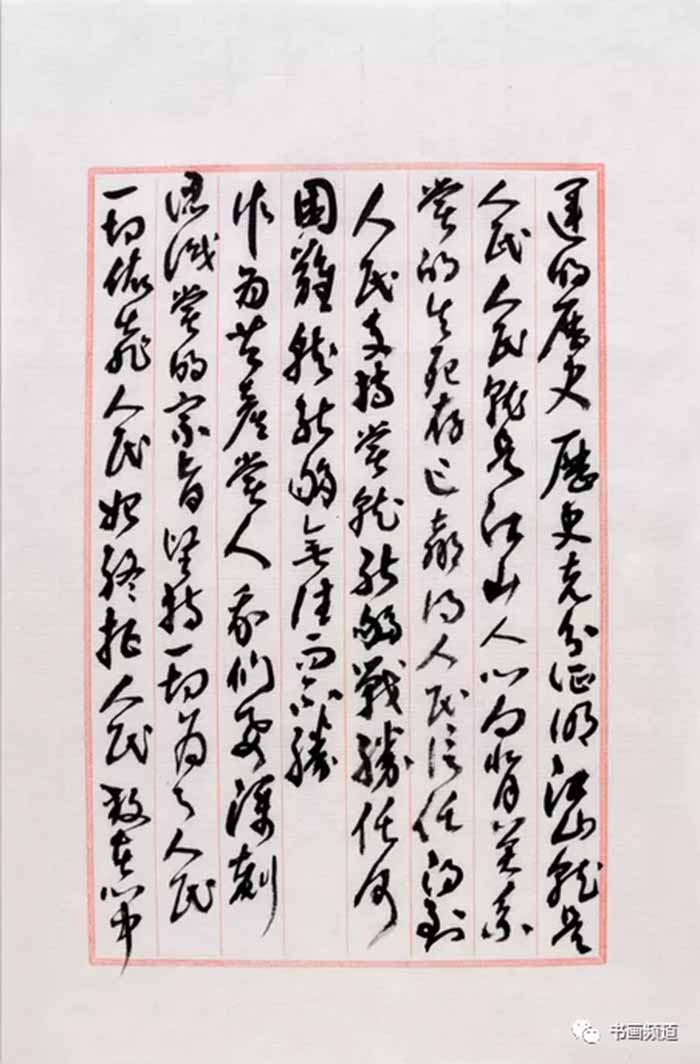 运的历史 歷史充分证明 江山就是
人民 人民就是江山 人心向背关系
党的生死存亡 赢得人民信任 得到
人民支持 党就能够战勝任何
困難 就能够无往而不勝
作为共产党人 我们要深刻
认识党的宗旨 坚持一切为了人民
一切依靠人民 始终把人民放在心中
书画频道